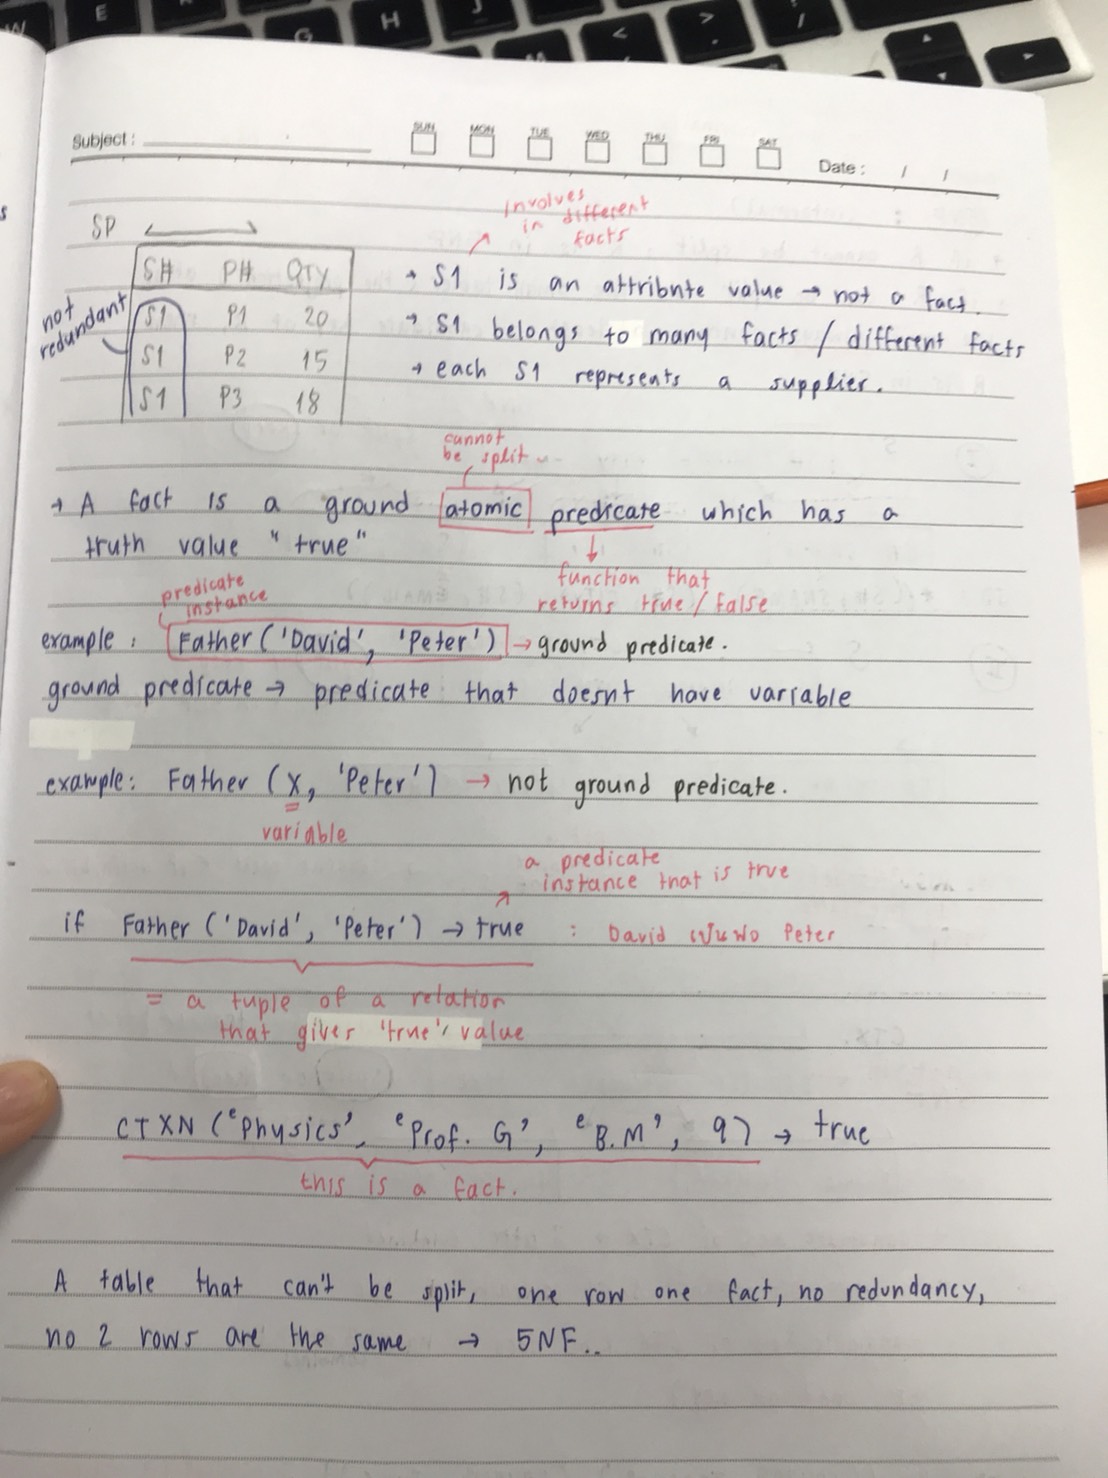 Subject :
SUN MON TUE WED THU FRI SAT
Date : / /
involves
in different
facts
SP
S# P# QTY
S1 P1 20
S1 P2 15
S1 P3 18
not
redundant
→ S1 is an attribute value → not a fact.
→ S1 belongs to many facts / different facts
→ each S1 represents a supplier.
cannot
be split
→ A fact is a ground atomic predicate which has a
truth value "true"
function that
returns true / false
predicate
instance
example : Father ('David', 'Peter') → ground predicate.
ground predicate → predicate that doesnt have variable
example: Father (x, 'Peter') → not ground predicate.
variable
a predicate
instance that is true
if Father ('David', 'Peter') → true : David เป็นพ่อ Peter
= a tuple of a relation
that gives 'true' value
CTXN ('Physics', 'Prof. G', 'B.M', 9) → true
this is a fact.
A table that can't be split, one row one fact, no redundancy,
no 2 rows are the same → 5NF..